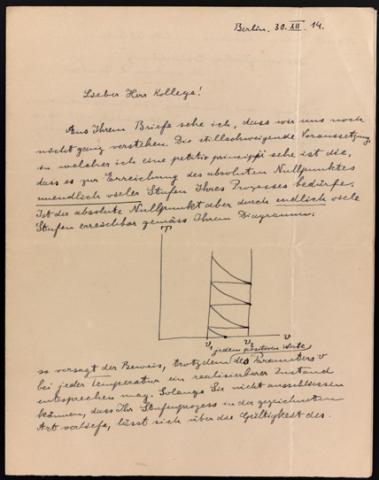 Berlin, 30. XII. 14.
Lieber Herr Kollege!
Aus Ihrem Briefe sehe ich, dass wir uns noch
nicht ganz verstehen. Die stillschweigende Voraussetzung
in welcher ich eine petitio principii sehe ist die,
dass es zur Erreichung des absoluten Nullpunktes
unendlich vieler Stufen Ihres Prozesses bedürfe.
Ist der absolute Nullpunkt aber durch endlich viele
Stufen erreichbar gemäss Ihrem Diagramm:
T
v₁ v₂ v
jedem positiven Werte
so versagt der Beweis, trotzdem des Parameters v
bei jeder Temperatur ein realisierbarer Zustand
entsprechen mag. Solange Sie nicht ausschliessen
können, dass Ihr Stufenprozess in der gezeichneten
Art verliefe, lässt sich über die Gültigkeit des